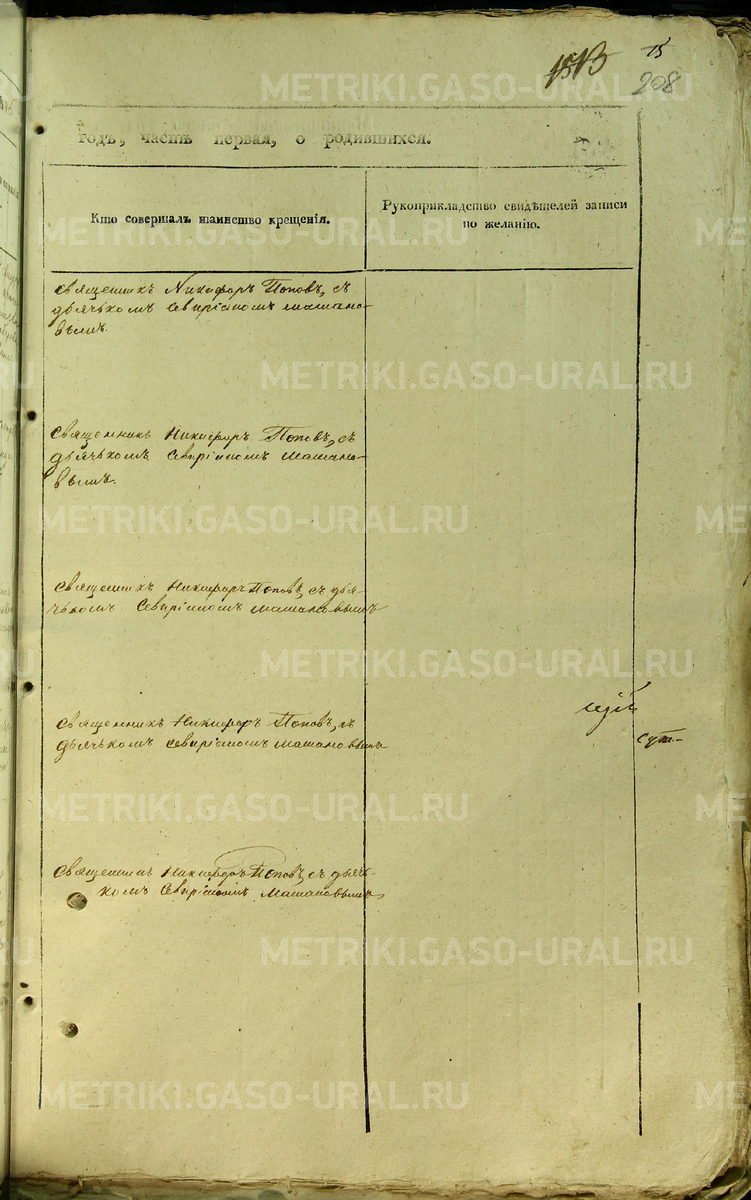 15
208
годъ, часть первая, о родившихся.
Кто совершалъ таинство крещенія.
Рукоприкладство свидѣтелей записи
по желанію.
Священникъ Никифоръ Поповъ, съ
дьячькомъ Севиріаномъ Машано-
вымъ.
Священникъ Никифоръ Поповъ, съ
дьячькомъ Севиріаномъ Машано-
вымъ.
Священникъ Никифоръ Поповъ, съ дья-
чькомъ Севиріаномъ Машановымъ
Священникъ Никифоръ Поповъ, съ
дьячькомъ Севиріаномъ Машановымъ
Священникъ Никифоръ Поповъ, съ дьячь-
комъ Севиріаномъ Машановымъ,
METRIKI.GASO-URAL.RU